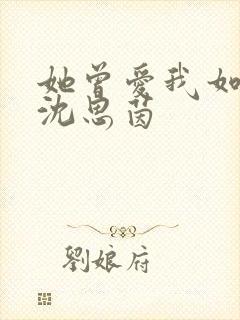 她曾愛我如
沈思茵
劉娘府